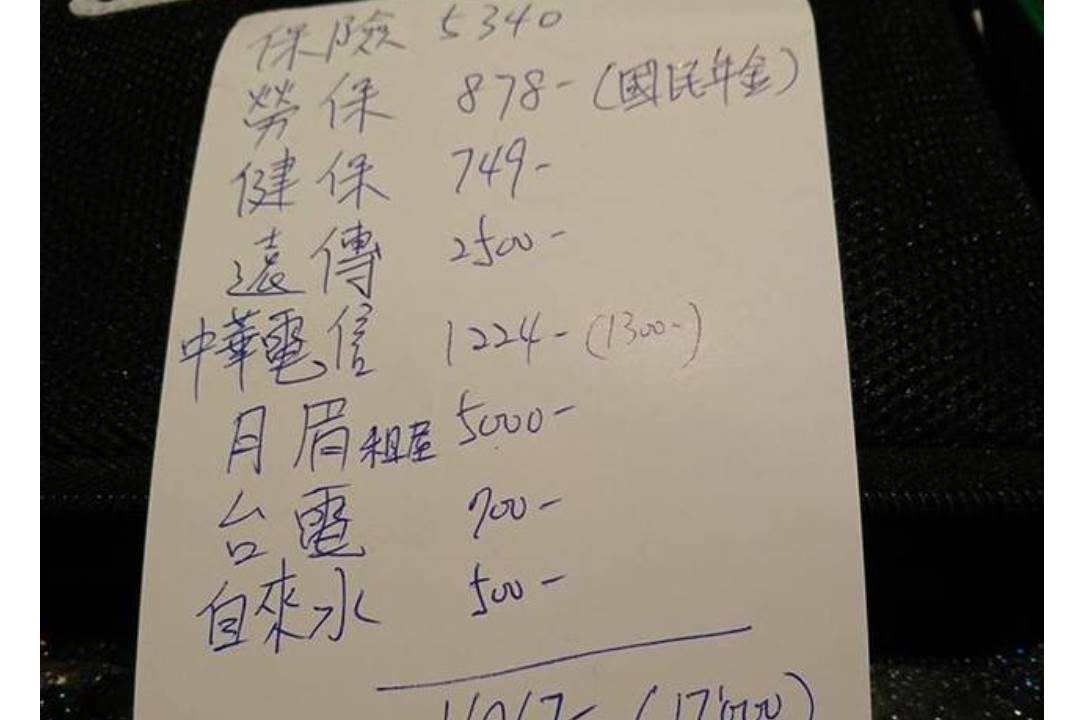 保險 5340
勞保 878-(國民年金)
健保 749-
遠傳 2500-
中華電信 1224-(1300-)
月眉租屋 5000-
台電 700-
自來水 500-
(17'000)